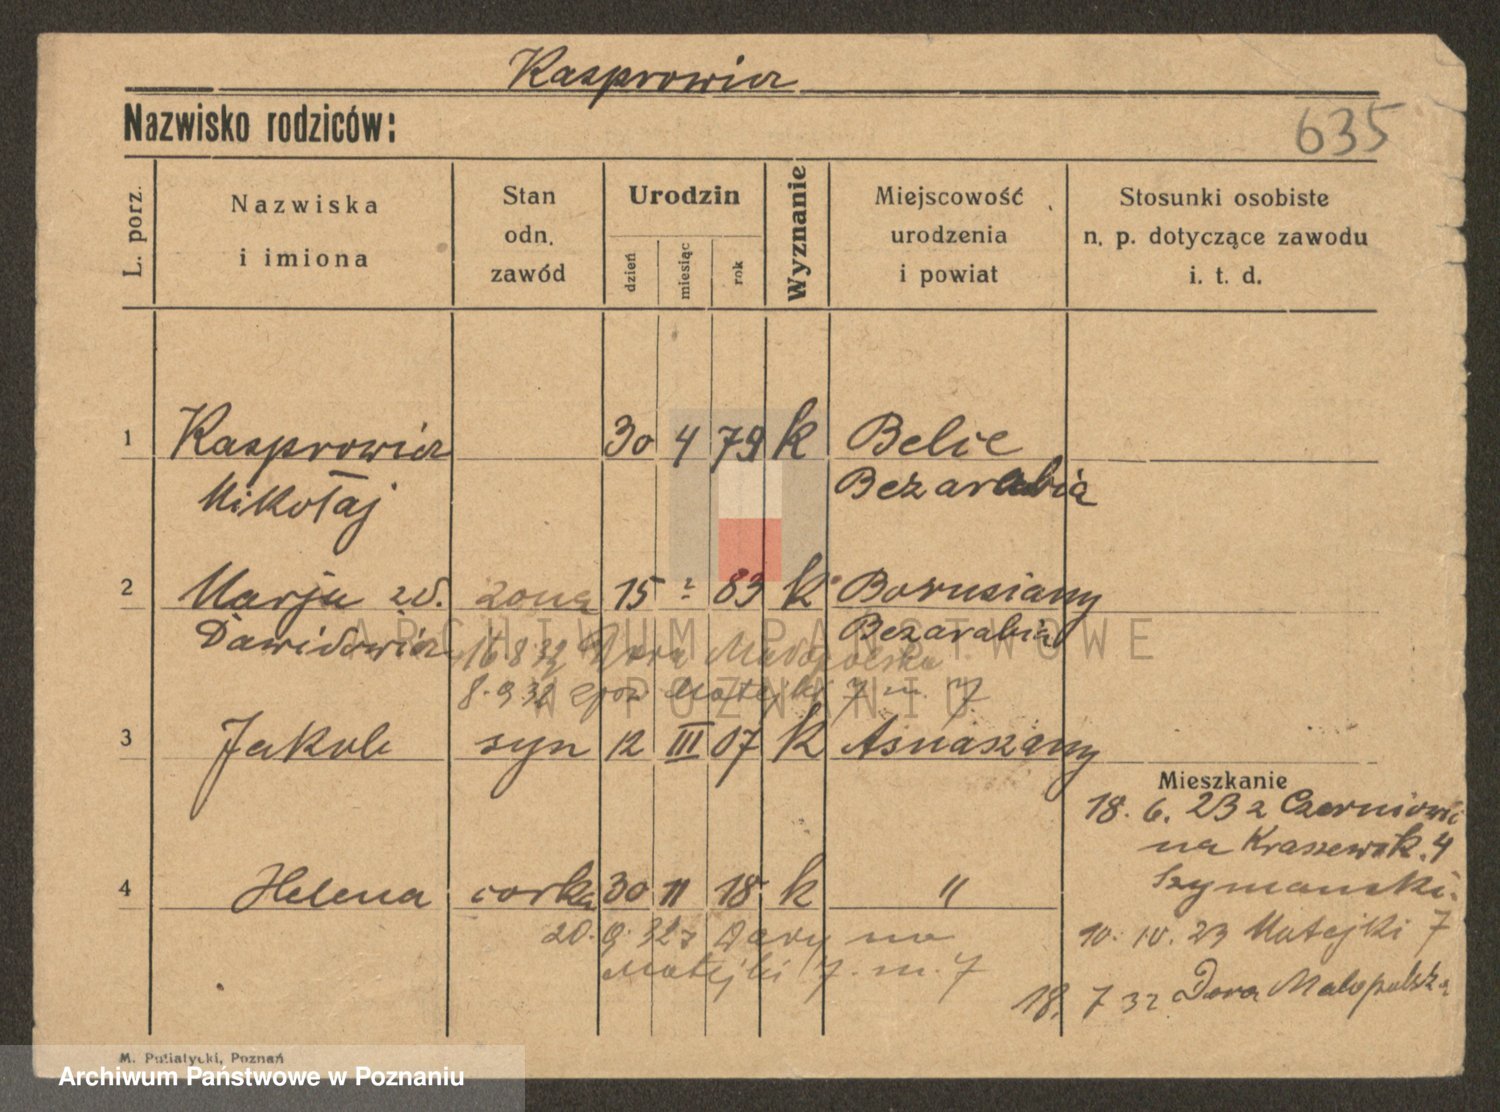 Kasprowicz
Nazwisko rodziców:
635
L. porz.
Nazwiska
i imiona
Stan
odn.
zawód
Urodzin
dzień
miesiąc
rok
Wyznanie
Miejscowość
urodzenia
i powiat
Stosunki osobiste
n. p. dotyczące zawodu
i. t. d.
1 Kasprowicz 30 4 79 k Belic
Mikołaj Bezarabia
2 Marja zd. żona 15 2 83 k Borusiany
Dawidowicz Bezarabia
16 8 32 Dora Małopolska
8. 9 32 Matejki 7 m. 7
3 Jakob syn 12 III 07 k Asnaszany
Mieszkanie
18. 6. 23 z Czerniowic
na Kraszewsk. 4
Szymański.
4 Helena corka 30 11 18 k "
20. 9. 32 z Dory na
Matejki 7. m. 7
10. 10. 23 Matejki 7
18. 7 32 Dora Małopolska
M. Putiatycki, Poznań
ARCHIWUM PAŃSTWOWE
W POZNANIU
Archiwum Państwowe w Poznaniu